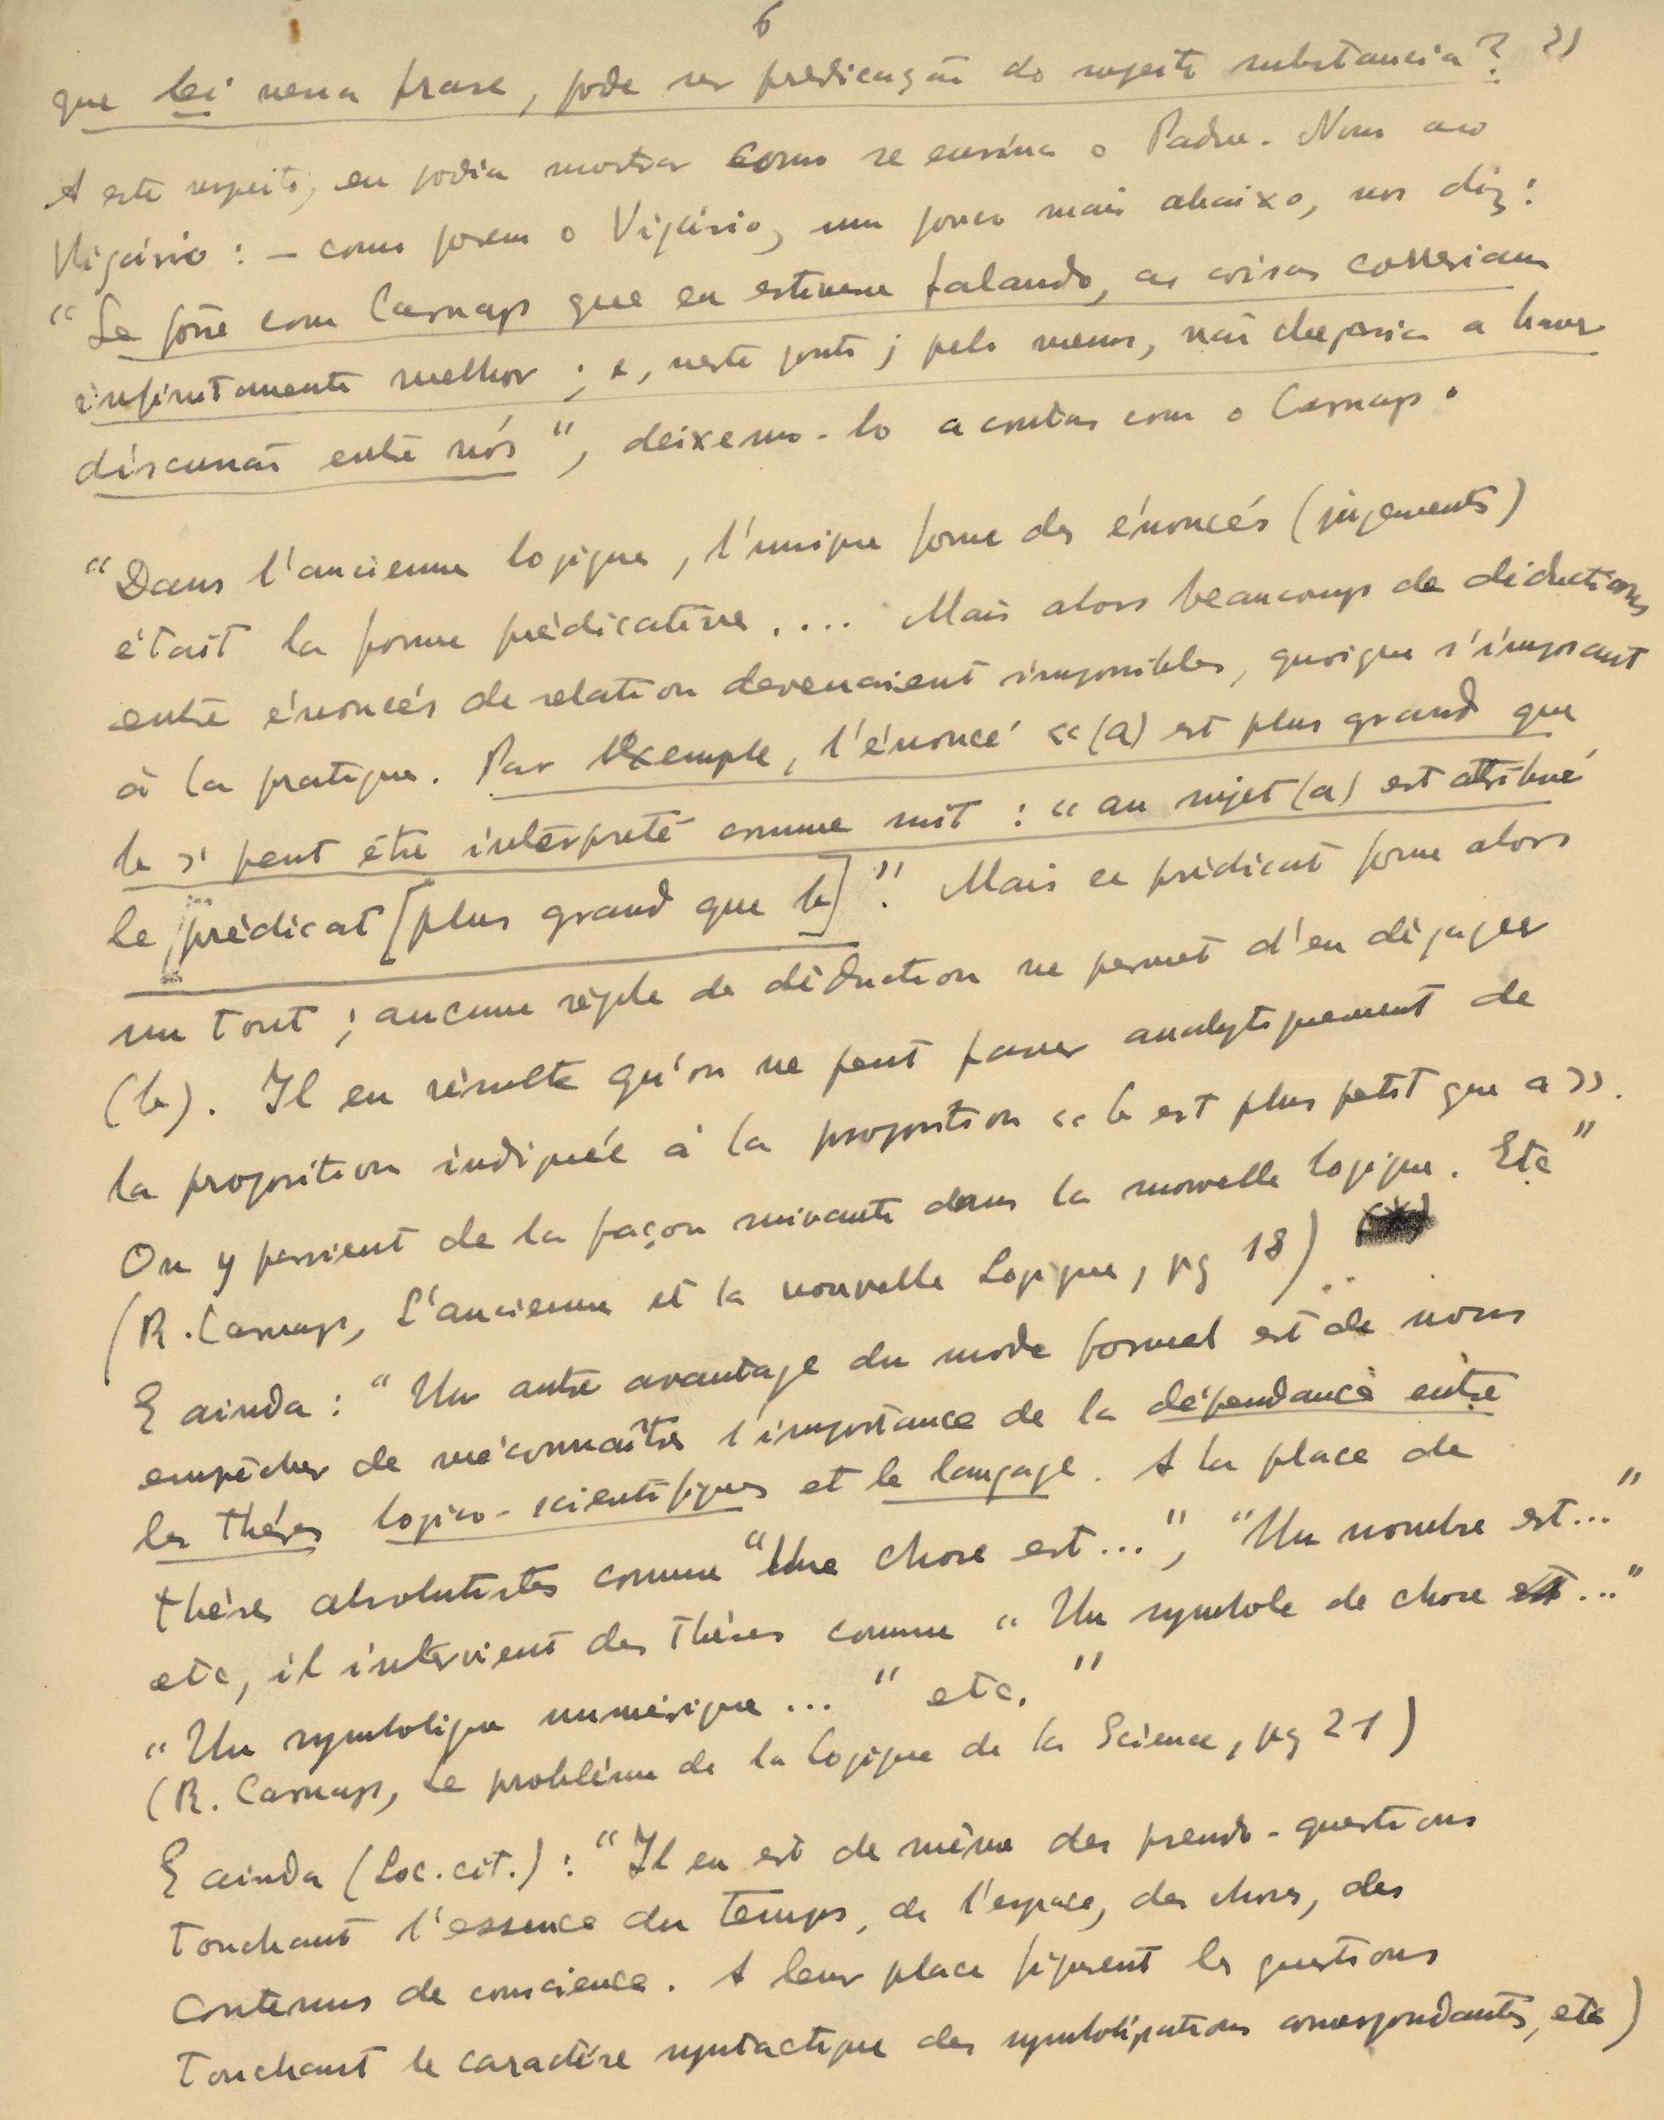 6
que lei nessa frase, pode ser predicação do sujeito substancia? »
A este respeito, eu podia mostrar como se ensina o Padre - Nosso ao
Vigário : — como porem o Vigário, um pouco mais abaixo, nos diz:
"Se fosse com Carnap que eu estivesse falando, as coisas correriam
infinitamente melhor ; e, neste ponto ; pelo menos, não chegaria a haver
discussão entre nós", deixemo-lo a contas com o Carnap.
"Dans l'ancienne logique, l'unique forme des énoncés (jugements)
était la forme prédicative.... Mais alors beaucoup de déductions
entre énoncés de relation devenaient impossibles, quoique s'imposant
à la pratique. Par exemple, l'énoncé «(a) est plus grand que
b » peut être interpreté comme suit : « au sujet (a) est attribué
le prédicat [plus grand que b]". Mais ce prédicat forme alors
un tout ; aucune règle de déduction ne permet d'en dégager
(b). Il en résulte qu'on ne peut passer analytiquement de
la proposition indiquée à la proposition « b est plus petit que a ».
On y parvient de la façon suivante dans la nouvelle logique. Etc"
(R. Carnap, L'ancienne et la nouvelle Logique, pg 18)
E ainda : "Un autre avantage du mode formel est de nous
empêcher de méconnaître l'importance de la dépendance entre
les thèses logico-scientifiques et le langage. A la place de
thèses absolutistes comme "Une chose est...", "Un nombre est..."
etc, il intervient des thèses comme "Un symbole de chose est..."
"Un symbolique numérique..." etc."
(R. Carnap, Le problème de la Logique de la Science, pg 21)
E ainda (Loc. cit.) : "Il en est de même des pseudo-questions
touchant l'essence du temps, de l'espace, des choses, des
contenus de conscience. A leur place figurent les questions
touchant le caractère syntactique des symbolisations correspondantes, etc)